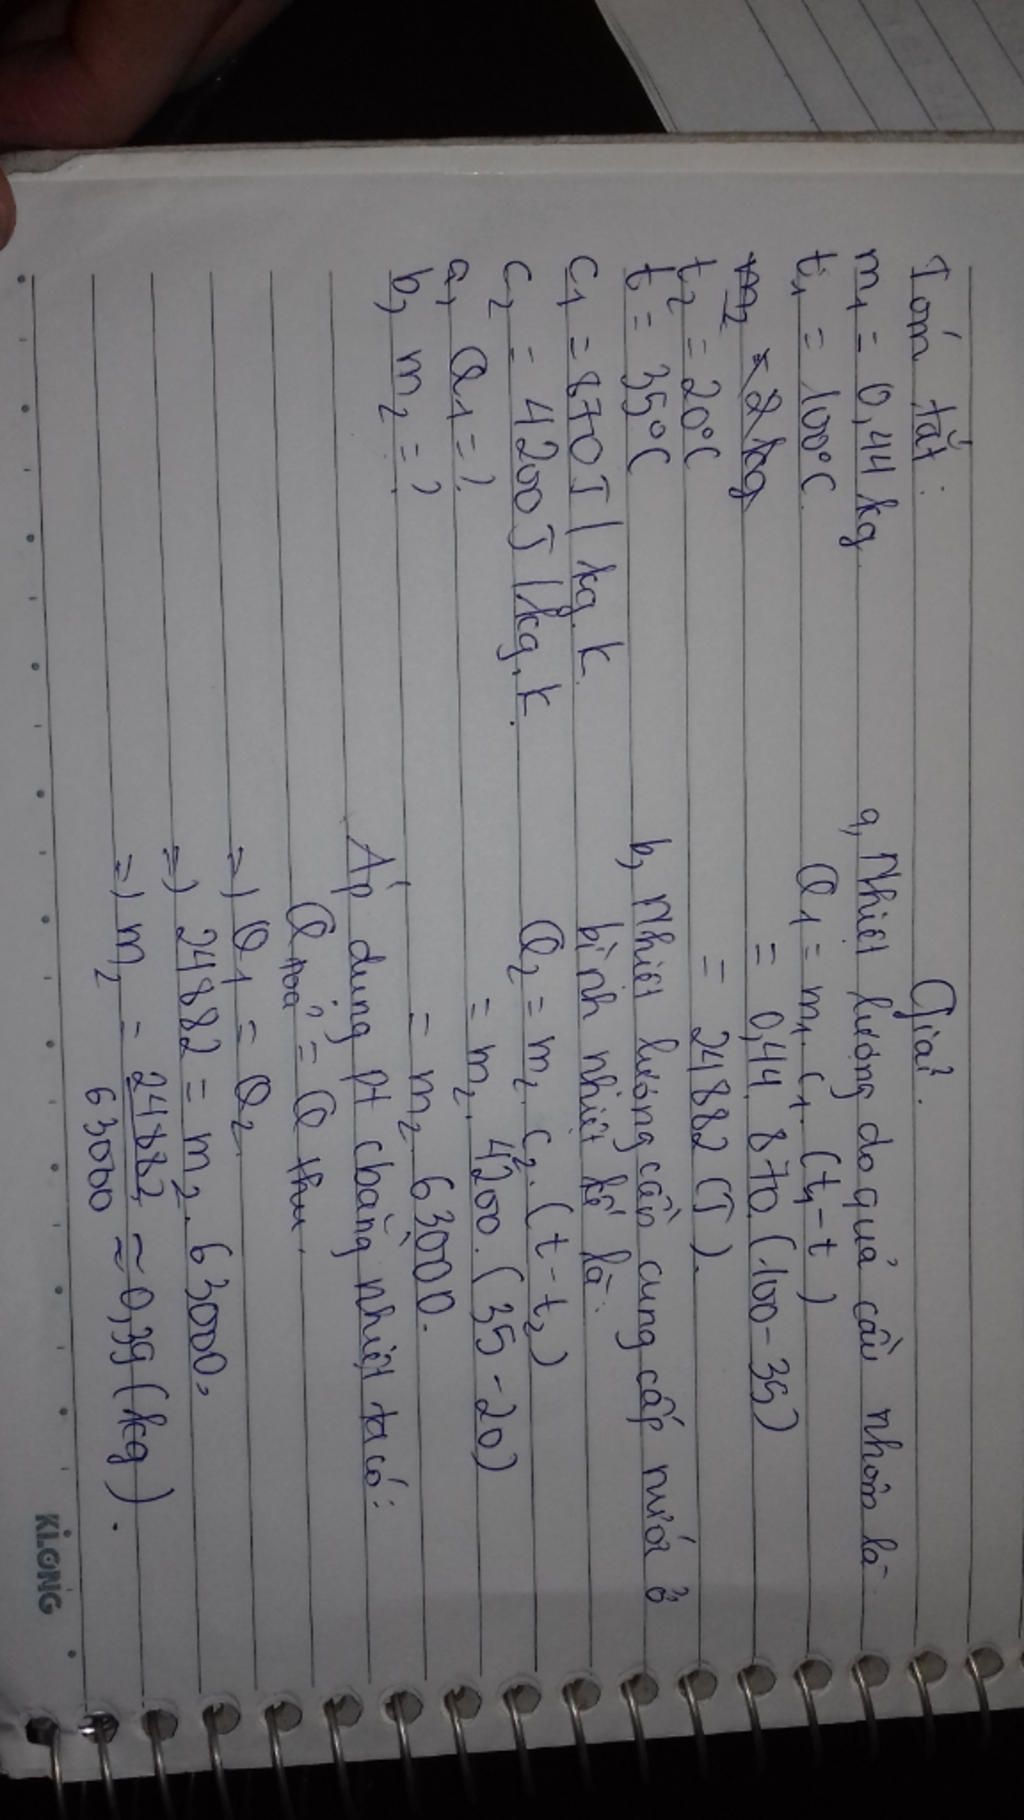 Tóm tắt:
m₁ = 0,44 kg
t₁ = 100°C
m₂ = 2 kg
t₂ = 20°C
t = 35°C
c₁ = 870 J / kg.k
c₂ = 4200 J / kg.k
a, Q₁ = ?
b, m₂ = ?
Giải.
a, Nhiệt lượng do quả cầu nhôm là
Q₁ = m₁. c₁. (t₁ - t)
= 0,44. 870. (100 - 35)
= 24882 (J).
b, Nhiệt lượng cần cung cấp nước ở
bình nhiệt kế là:
Q₂ = m₂. c₂. (t - t₂)
= m₂. 4200. (35 - 20)
= m₂. 63000.
Áp dụng pt cbằng nhiệt ta có:
Q toả = Q thu.
=> Q₁ = Q₂
=> 24882 = m₂. 63000,
=> m₂ = 24882 / 63000 ≈ 0,39 (kg).
KLONG